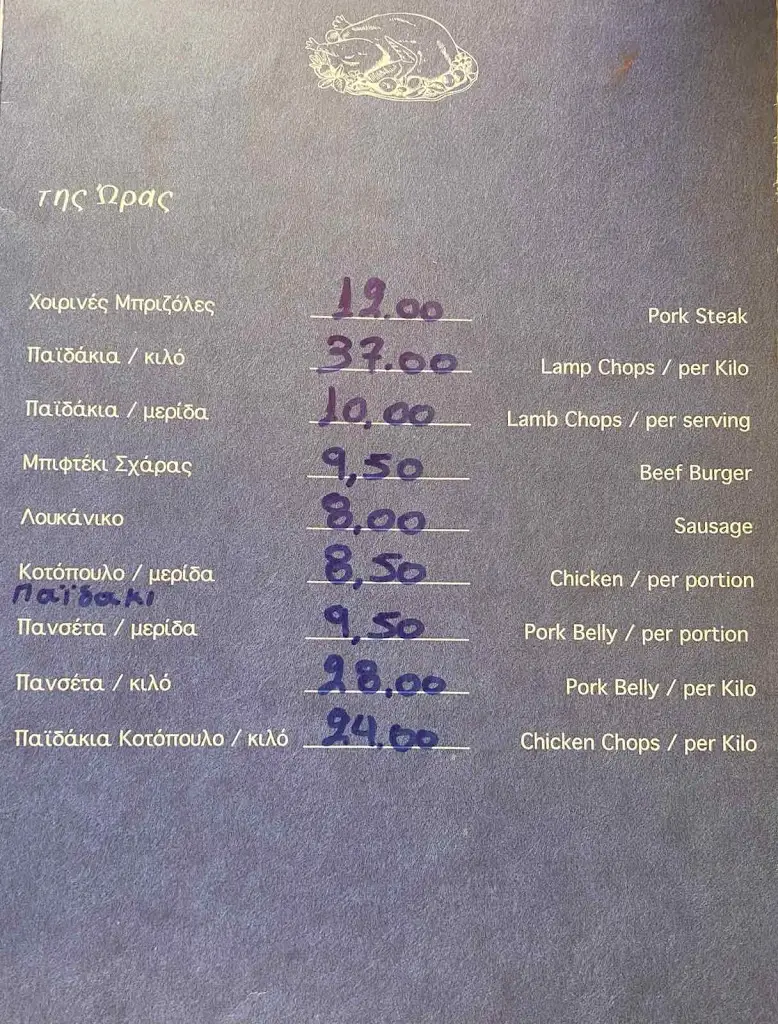 της Ώρας
Χοιρινές Μπριζόλες 12.00 Pork Steak
Παϊδάκια / κιλό 37.00 Lamp Chops / per Kilo
Παϊδάκια / μερίδα 10,00 Lamb Chops / per serving
Μπιφτέκι Σχάρας 9,50 Beef Burger
Λουκάνικο 8,00 Sausage
Κοτόπουλο / μερίδα 8,50 Chicken / per portion
παϊδακι
Πανσέτα / μερίδα 9,50 Pork Belly / per portion
Πανσέτα / κιλό 28,00 Pork Belly / per Kilo
Παϊδάκια Κοτόπουλο / κιλό 24.00 Chicken Chops / per Kilo